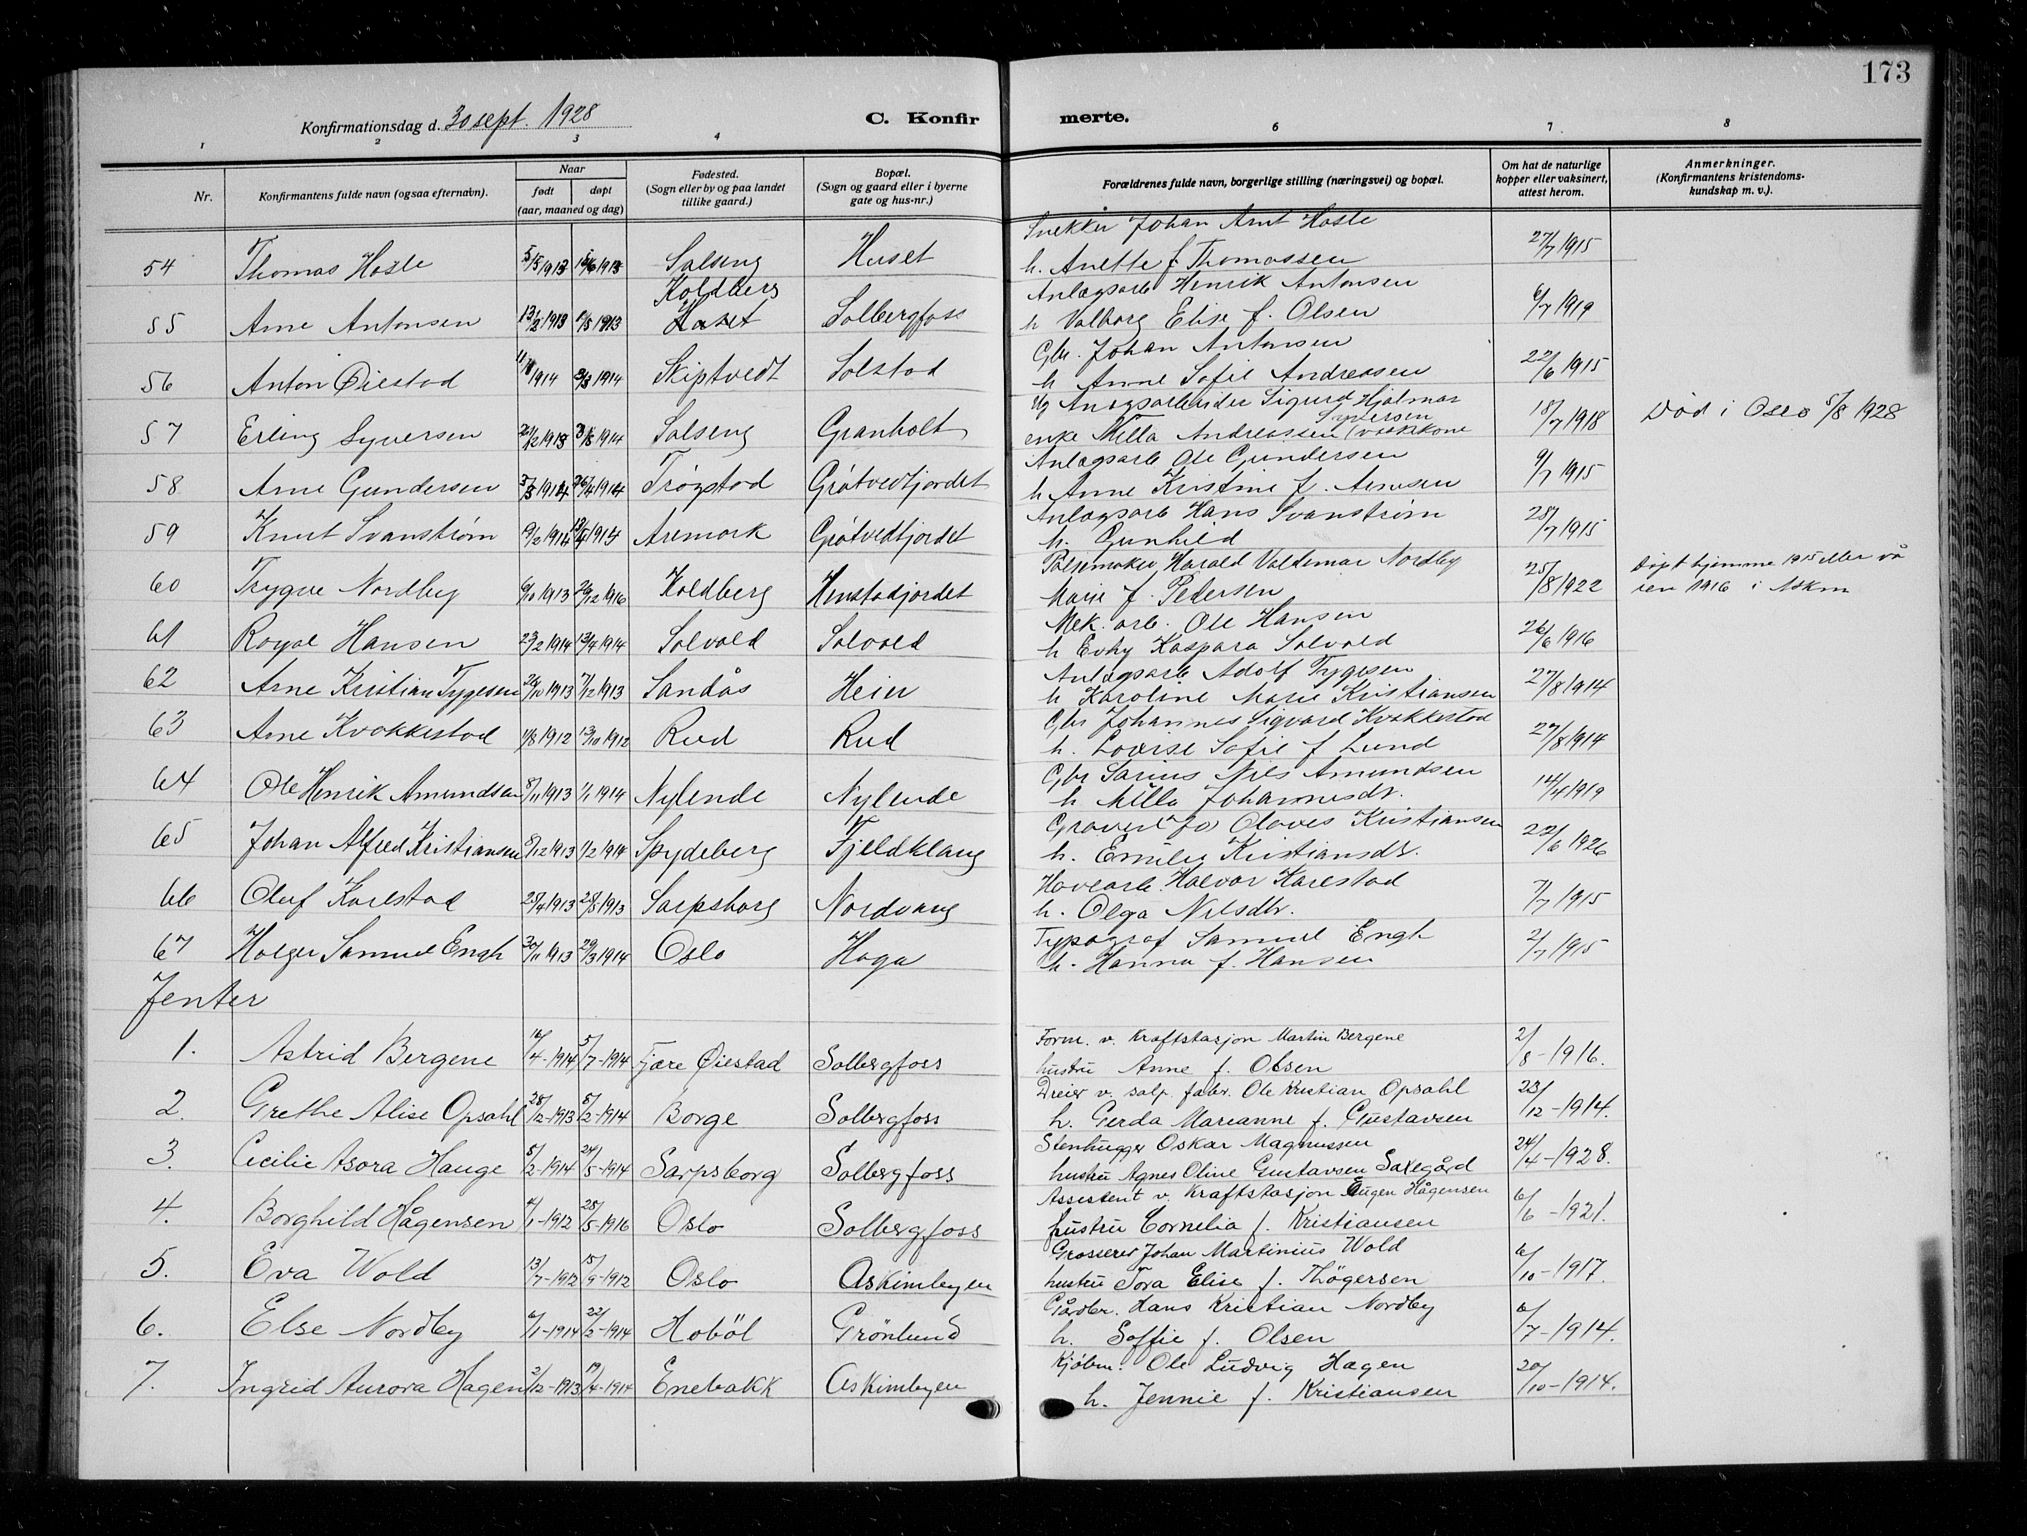 173
Konfirmationsdag d. 30 sept. 1928
C. Konfirmerte.
1 2 3 4 5 6 7 8
Nr.
Konfirmantens fulde navn (ogsaa efternavn).
Naar
født
døpt
(aar, maaned og dag)
Fødested.
(Sogn eller by og paa landet
tillike gaard.)
Bopæl.
(Sogn og gaard eller i byerne
gate og hus-nr.)
Forældrenes fulde navn, borgerlige stilling (næringsvei) og bopæl.
Om hat de naturlige
kopper eller vaksinert,
attest herom.
Anmerkninger.
(Konfirmantens kristendoms-
kundskap m. v.).
Snekker Johan Arnt Hasle
54 Thomas Hasle 5/5 1913 Solseng Huset h. Anette f. Thomassen 27/7 1915
Koldberg Anlægsarb Henrik Antonsen
55 Arne Antonsen 13/2 1913 1/5 1913 Solbergfoss h Valborg Elise f. Olsen 6/7 1919
Gbr. Johan Antonsen
56 Anton Øiestad 1914 8/3 1914 Skiptvedt Solstad h Anne Sofie Andreassen 22/6 1915
Ug Anlægsarbeider Sigurd Hjalmar
Syversen
57 Erling Syversen 21/12 1913 1914 Solseng Granholt enke Milla Andreassen (vaskkone 18/7 1918 Død i Oslo 5/8 1928
Anlægsarb Ole Gundersen
58 Arne Gundersen 5/3 1914 26/4 1914 Trøgstad Grøtvedtjordet h Anne Kristine f. Arnesen 9/7 1915
Anlægsarb Hans Svanstrøm
59 Knut Svanstrøm 9/2 1914 13/4 1914 Aremark Grøtvedtjordet h. Gunhild 28/7 1915
Pølsemaker Harald Valdemar Nordby
60 Trygve Nordby 6/10 1913 26/12 1916 Koldberg Henstadjordet Marie f. Pedersen 25/8 1922 Døpt hjemme 1915 eller vå
ren 1916 i Askim
Mek. arb. Ole Hansen
61 Royal Hansen 23/2 1914 13/4 1914 Solvold Solvold h Evhy Kaspara Solvold 26/6 1916
Anlægsarb Adolf Tygesen
62 Arne Kristian Tygesen 26/10 1913 7/12 1913 Sandås Heier h Karoline Marie Kristiansen 27/8 1914
Gbr Johannes Sigvard Kvakkestad
63 Arne Kvakkestad 11/8 1912 13/10 1912 Rud Rud h. Lovise Sofie f Lund 27/8 1914
Gbr Sarius Nils Amundsen
64 Ole Henrik Amundsen 8/11 1913 1/1 1914 Nylende Nylende h Milla Johannesdr. 14/4 1919
Olaves Kristiansen
65 Johan Alfred Kristiansen 8/12 1913 1/2 1914 Spydeberg Fjeldklang h. Emilie Kristiansdr. 22/6 1926
Havearb. Halvor Karlstad
66 Oluf Karlstad 25/4 1913 28/8 1913 Sarpsborg Nordvang h. Olga Nilsdtr. 7/7 1915
Typograf Samuel Engh
67 Holger Samuel Engh 30/11 1913 29/3 1914 Oslo Haga h. Hanna f. Hansen 2/7 1915
Jenter
Form. v. Kraftstasjon Martin Bergene
1. Astrid Bergene 16/4-1914 5/7-1914 Fjære Øiestad Solbergfoss hustru Anne f. Olsen 2/8-1916.
Dreier v. salp. fabr. Ole Kristian Opsahl
2. Grethe Alise Opsahl 28/12-1913 8/2-1914 Borge Solbergfoss h. Gerda Marianne f. Gustavsen 23/12-1914.
Stenhugger Oskar Magnussen
3. Cecilie Asora Hauge 5/2-1914 24/5-1914 Sarpsborg Solbergfoss hustru Agnes Oline Gustavsen Saxegård 24/4-1928.
Assistent v. Kraftstasjon Eugen Hågensen
4. Borghild Hågensen 1/1-1912 28/5-1916 Oslo Solbergfoss hustru Cornelia f. Kristiansen 6/6-1921.
Grosserer Johan Martinius Wold
5. Eva Wold 13/7-1912 15/9-1912 Oslo Askimbyen hustru Tora Elise f. Thøgersen 6/10-1917.
Gårdbr. Hans Kristian Nordby
6. Else Nordby 6/1-1914 22/2-1914 Hobøl Grønlund h. Soffie f. Olsen 6/7-1914.
Kjøbm. Ole Ludvig Hagen
7. Ingrid Aurora Hagen 2/12-1913 19/4-1914 Enebakk Askimbyen h. Jennie f. Kristiansen 20/10-1914.